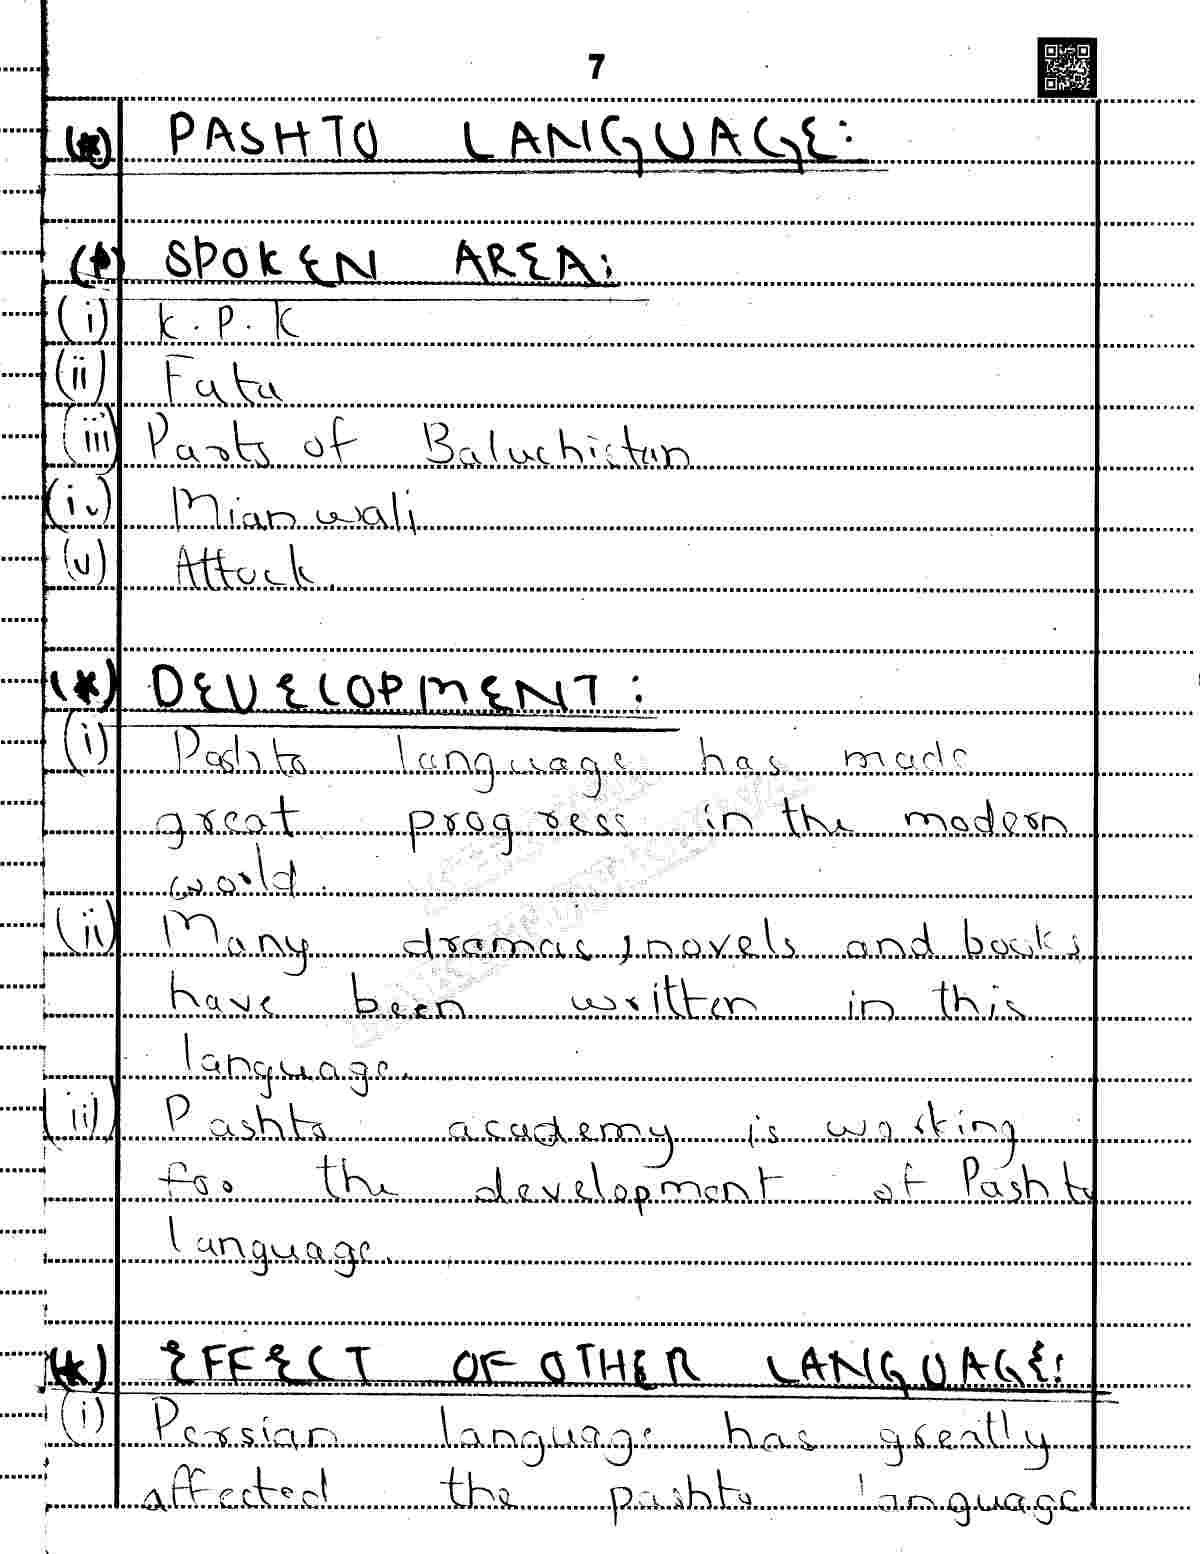 7
(*) PASHTO LANGUAGE:
(*) SPOKEN AREA:
(i) K.P.K
(ii) Fata
(iii) Parts of Baluchistan
(iv) Mianwali
(v) Attock.
(*) DEVELOPMENT:
(i) Pashto language has made
great progress in the modern
world.
(ii) Many dramas, novels and books
have been written in this
language.
(iii) Pashto academy is working
for the development of Pashto
language.
(*) EFFECT OF OTHER LANGUAGE:
(i) Persian language has greatly
affected the pashto language